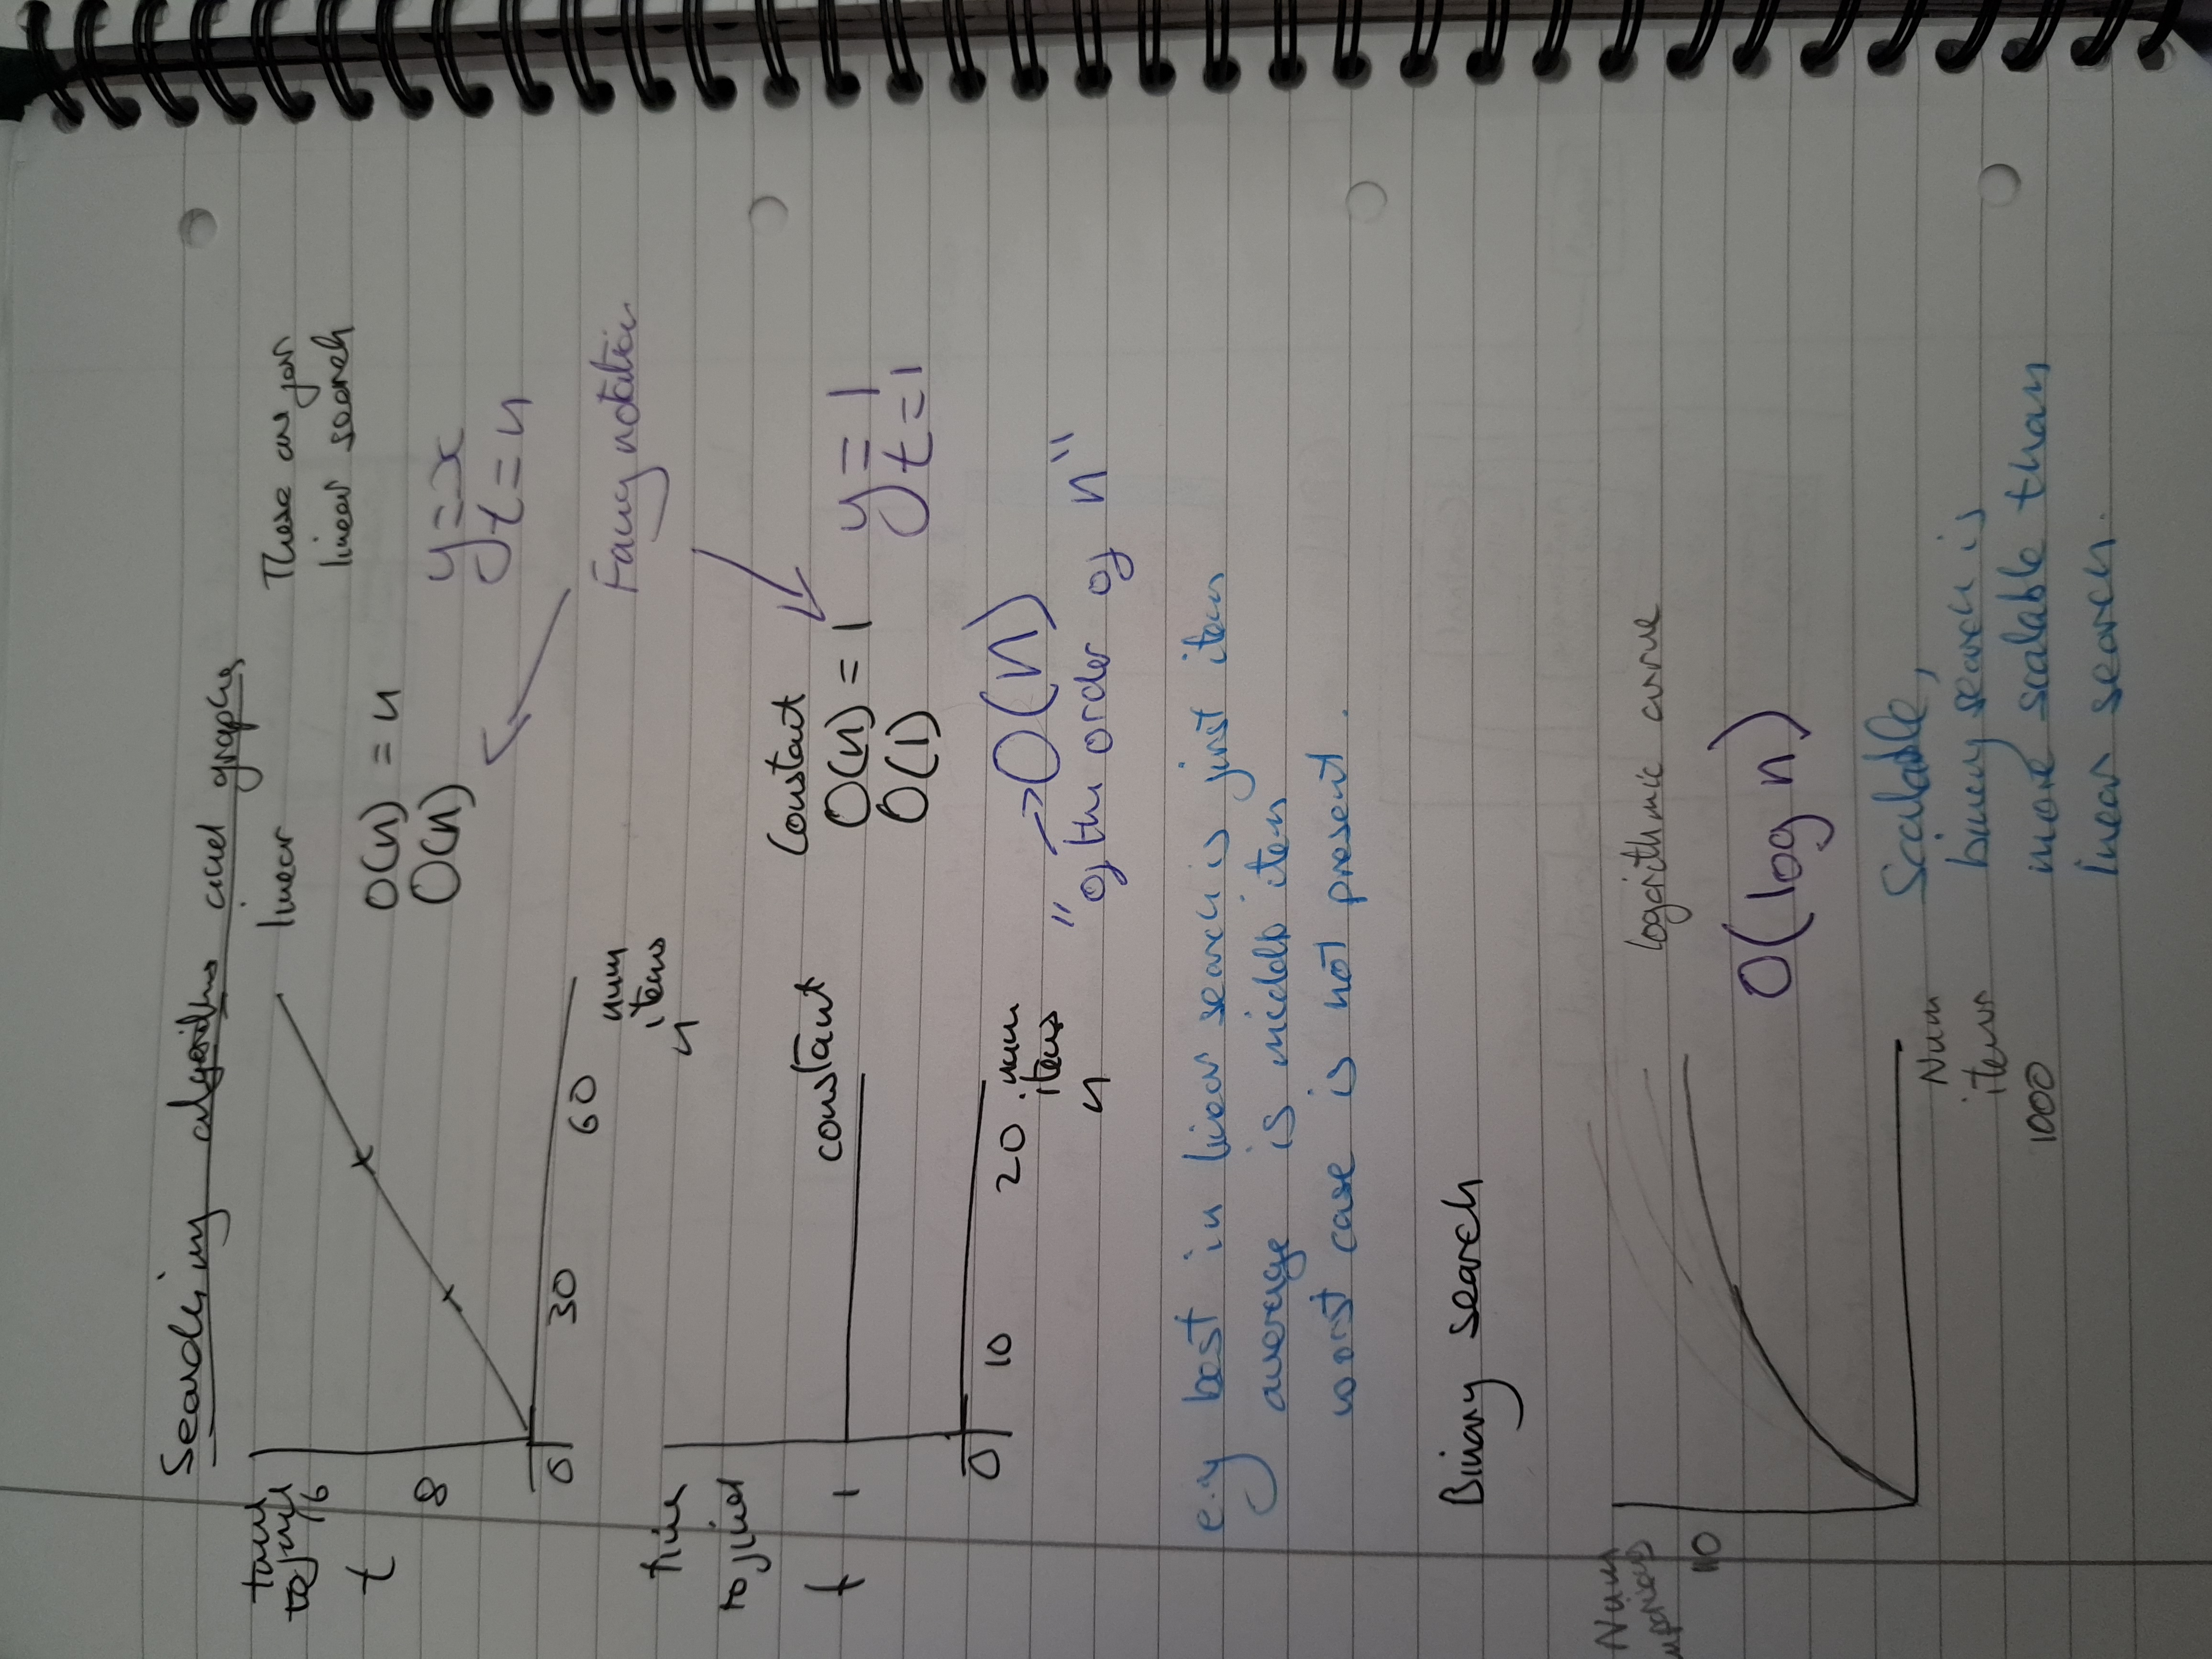 Searching algorithms and graphs
to find
16
t
8
0
30
60
linear
O(n) = n
O(n)
These are for
linear search
y=x
t=n
Fancy notation
num
items
n
time
to find
t
1
constant
0
10
20
num
items
n
Constant
O(n) = 1
O(1)
y=1
t=1
→O(n)
"of the order of n"
e.g best in linear search is first item
average is middle item
worst case is not present.
Binary search
Num
10
logarithmic curve
O(log n)
Num
items
1000
Scalable,
binary search is
more scalable than
linear search.